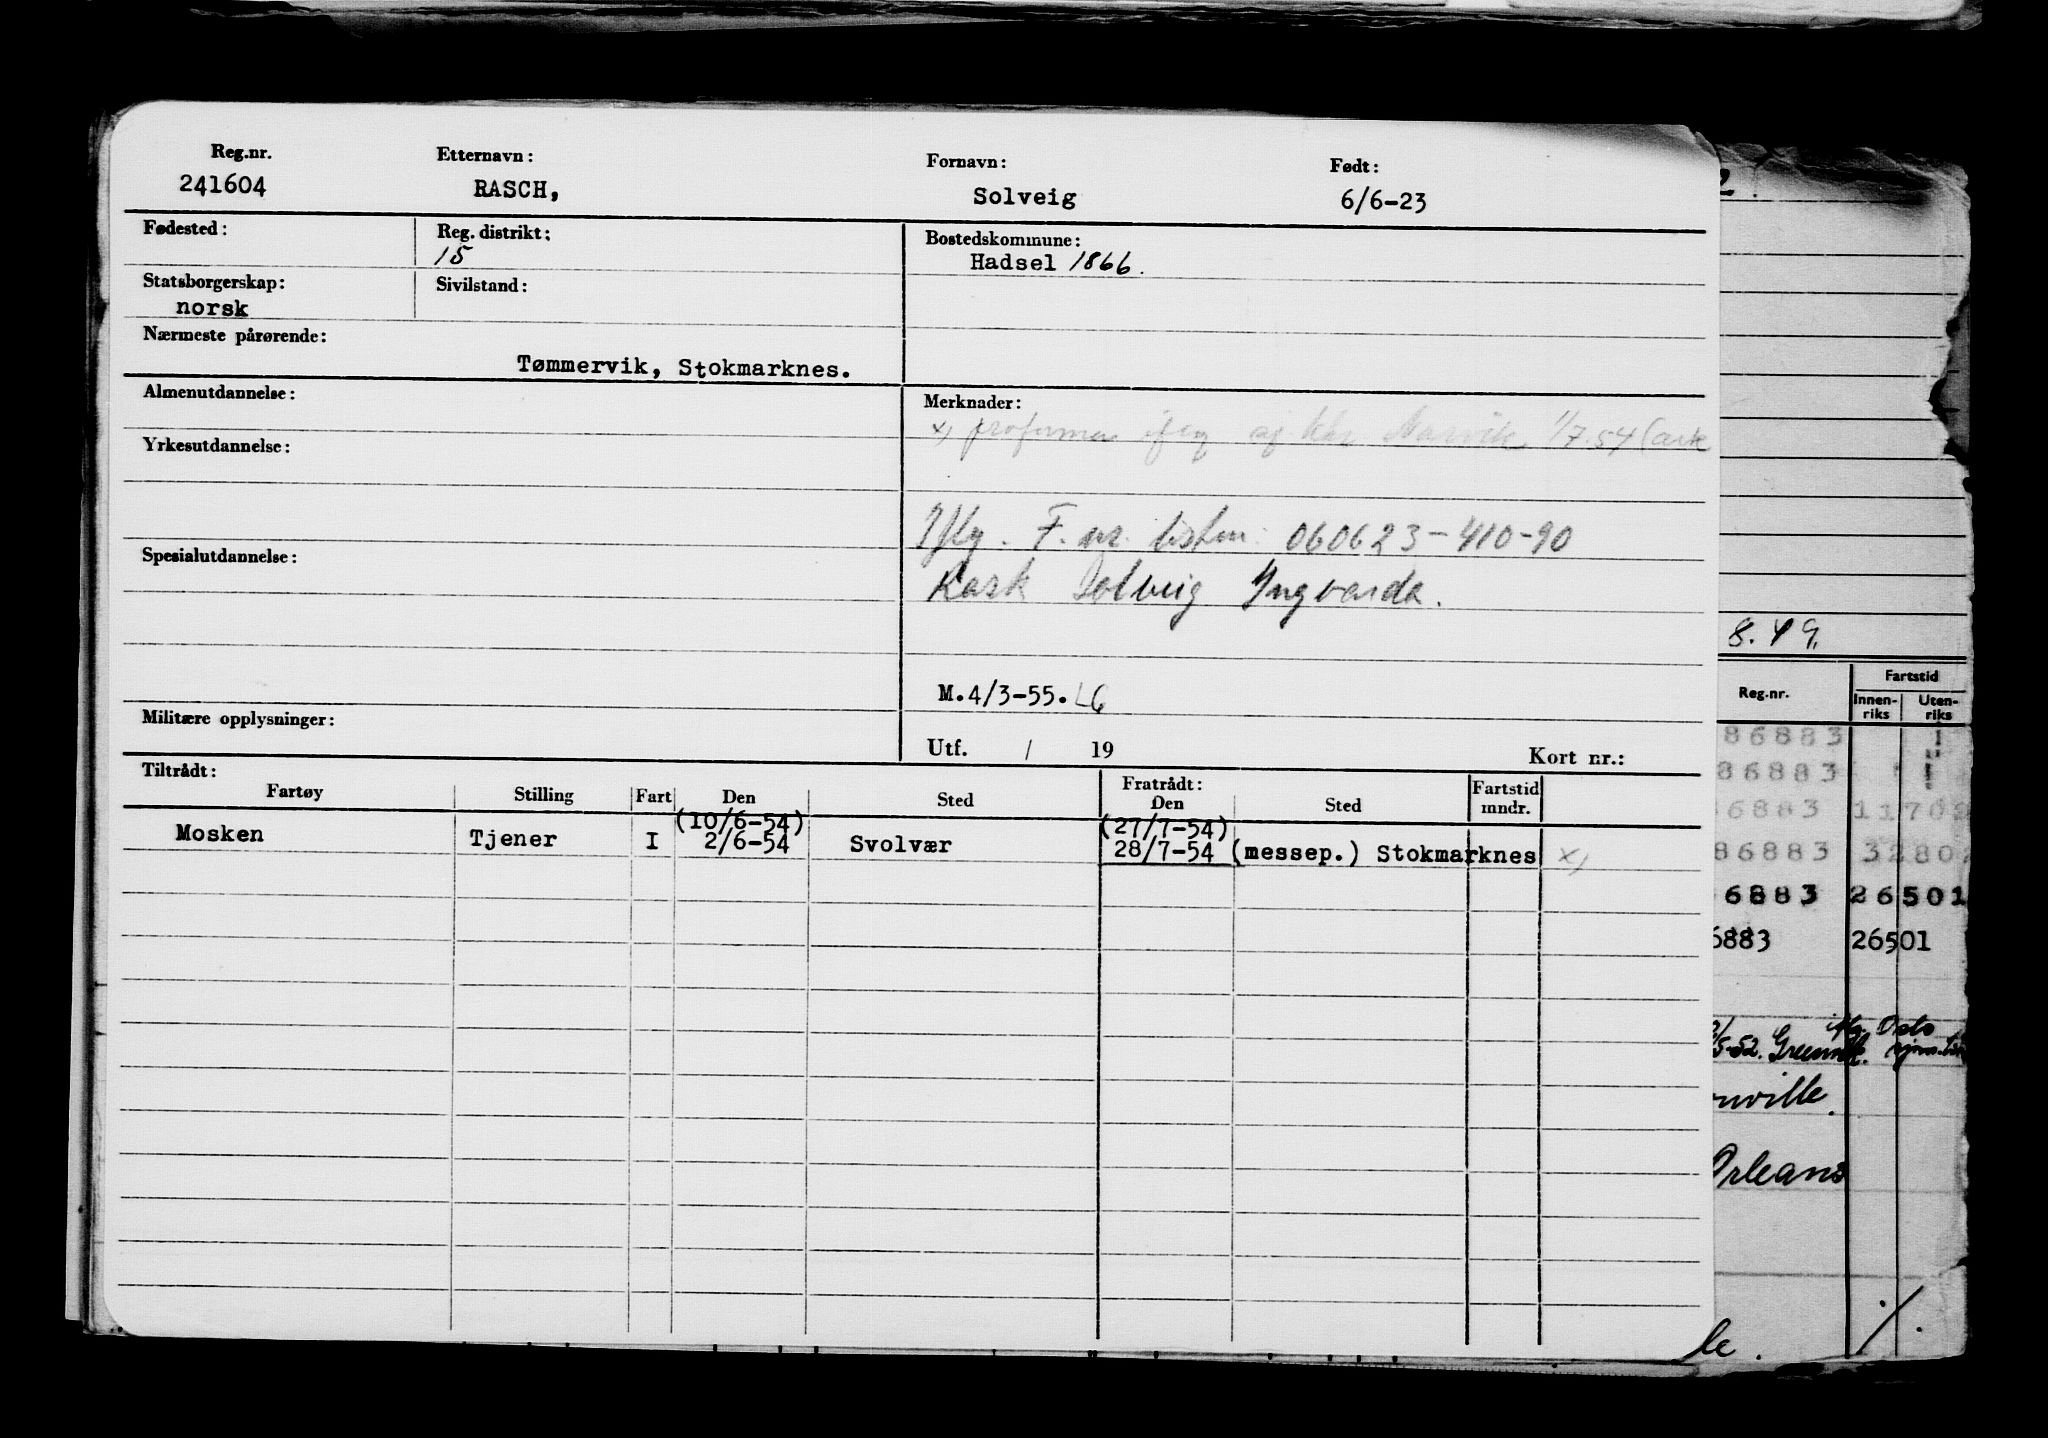 Reg.nr. Etternavn: Fornavn: Født:
241604 RASCH, Solveig 6/6-23
Fødested: Reg. distrikt: Bostedskommune:
15 Hadsel 1866.
Statsborgerskap: Sivilstand:
norsk
Nærmeste pårørende:
Tømmervik, Stokmarknes.
Almenutdannelse: Merknader:
x) Narvik 1/7.54 (
Yrkesutdannelse:
Iflg. F. nr. listen: 060623-410-90
Spesialutdannelse:
Rask Solveig Ingvarda.
M.4/3-55. LG
Militære opplysninger:
Utf. / 19 Kort nr.:
Tiltrådt: Fratrådt:
Fartøy Stilling Fart Den Sted Den Sted Fartstid mndr.
(10/6-54) (27/7-54)
Mosken Tjener I 2/6-54 Svolvær 28/7-54 (messep.) Stokmarknes x)
2.
8.49.
Reg.nr. Fartstid
Innen-riks Uten-riks
86883
86883
6883 1170
86883 3280
6883 26501
6883 26501
5-52. Oslo
Orleans